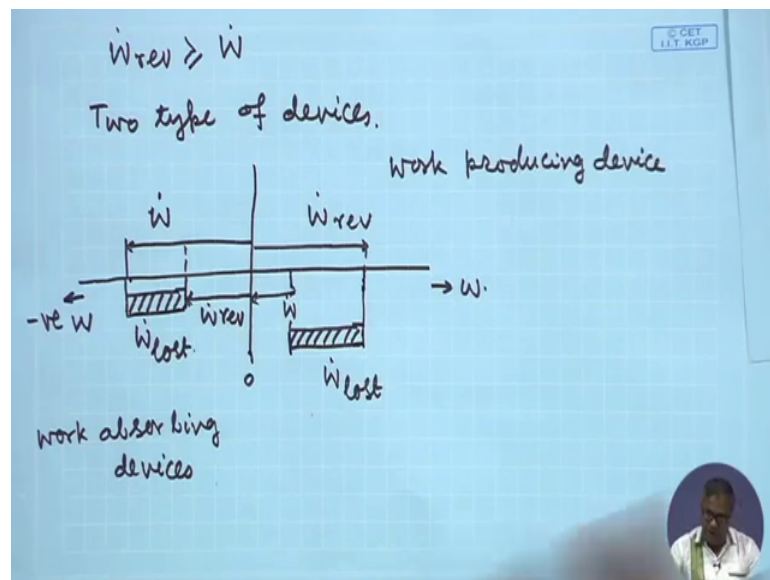 Ẇrev ⩾ Ẇ
© CET
I.I.T. KGP
Two type of devices.
work producing device
Ẇ
Ẇrev
→ W.
-ve W
Ẇrev
Ẇ
Ẇlost.
Ẇlost
0
work absorbing
devices